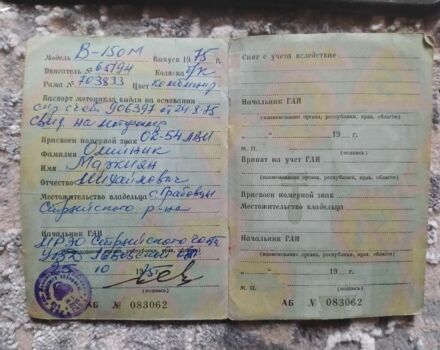 Модель В-150М Выпуск 1975 г.
Двигатель № 65194 Коляска б/к
Рама № 703833 Цвет
Паспорт мотоцикла выдан на основании
счет 906397 от 24.8.75
Присвоен номерной знак 02-54
Фамилия Олийник
Имя Маркиян
Отчество Михайлович
Местожительство владельца с. Грабовцы
Стрыйского р-на
Начальник ГАИ
МРЭО Стрыйского
(наименование органа, республики, края, области)
10 1975 г.
(подпись)
АБ № 083062
Снят с учета вследствие
Начальник ГАИ
(наименование органа, республики, края, области)
19 г.
М. П. (подпись)
Принят на учет ГАИ
(наименование органа, республики, края, области)
Присвоен номерной знак
Местожительство владельца
Начальник ГАИ
(наименование органа, республики, края, области)
19 г.
М. П. (подпись)
АБ № 083062